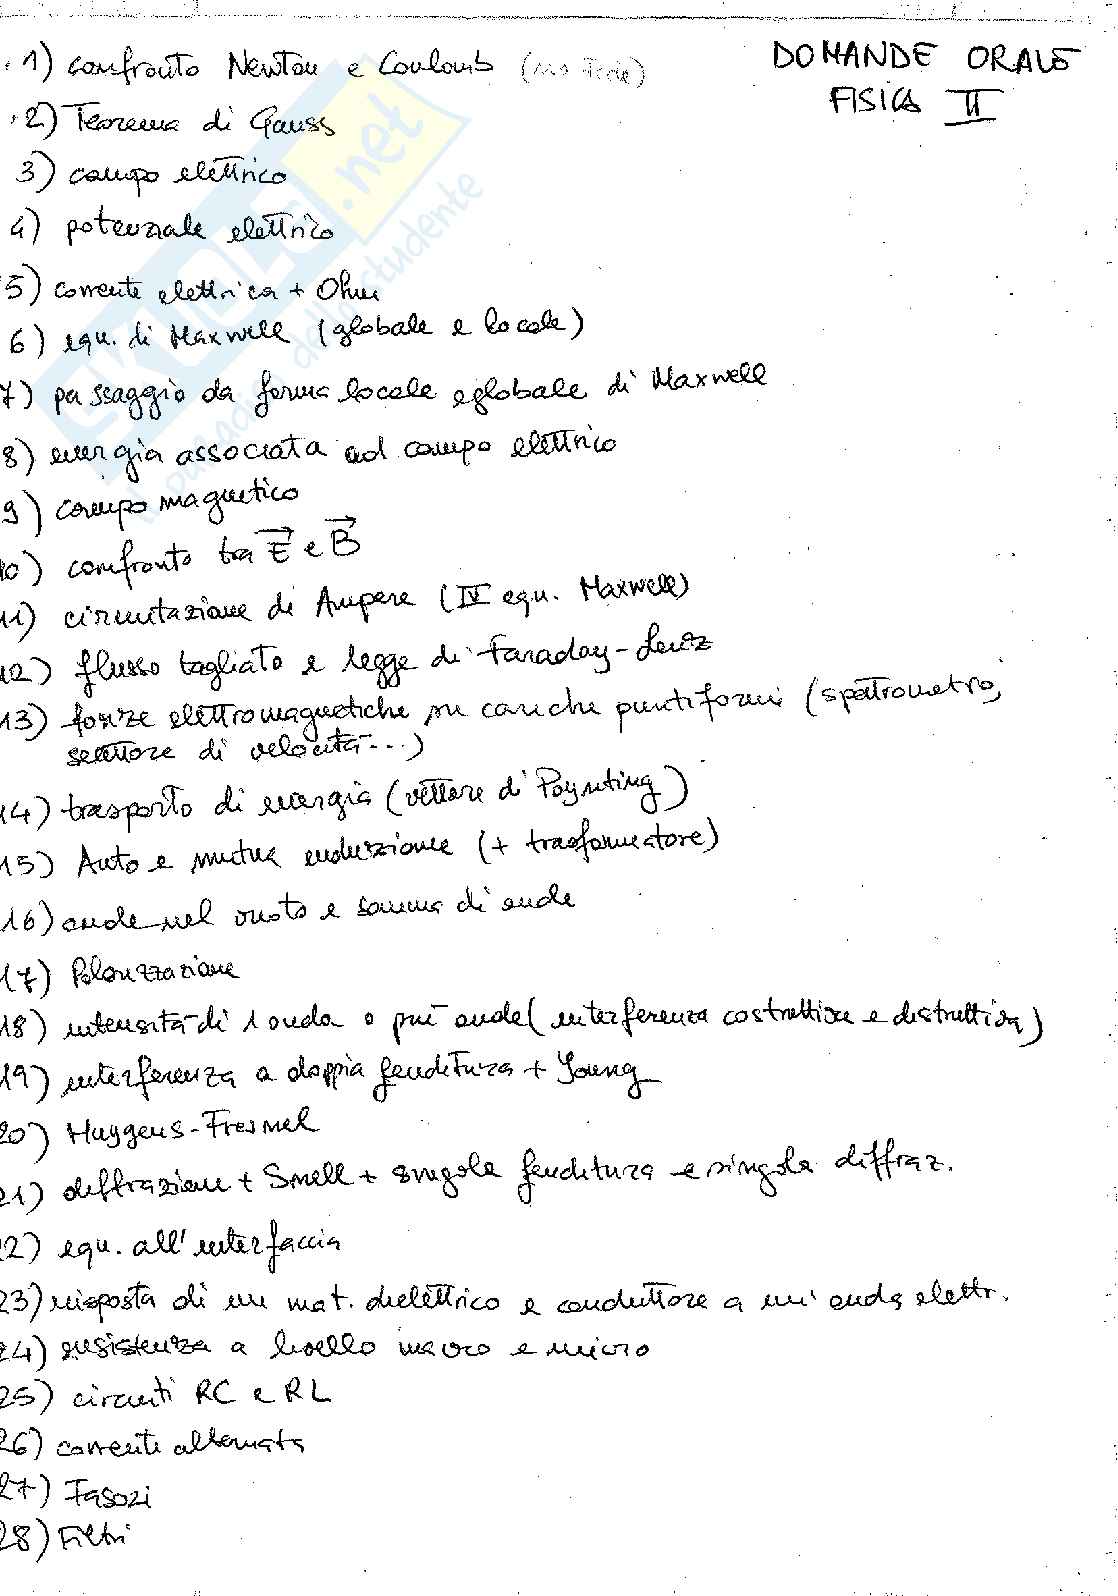 DOMANDE ORALE
FISICA II
1) confronto Newton e Coulomb
2) Teorema di Gauss
3) campo elettrico
4) potenziale elettrico
5) corrente elettrica + Ohm
6) equ. di Maxwell (globale e locale)
7) passaggio da forma locale e globale di Maxwell
8) energia associata ad campo elettrico
9) campo magnetico
10) confronto tra E e B
11) circuitazione di Ampere (IV equ. Maxwell)
12) flusso tagliato e legge di Faraday-Lenz
13) forze elettromagnetiche su cariche puntiformi (spettrometro,
selettore di velocità...)
14) trasporto di energia (vettore di Poynting)
15) Auto e mutua induzione (+ trasformatore)
16) onde nel vuoto e somma di onde
17) Polarizzazione
18) intensità di 1 onda o più onde (interferenza costruttiva e distruttiva)
19) interferenza a doppia fenditura + Young
20) Huygens-Fresnel
21) diffrazione + Snell + singola fenditura e singola diffraz.
22) equ. all'interfaccia
23) risposta di un mat. dielettrico e conduttore a un'onda elettr.
24) resistenza a livello macro e micro
25) circuiti RC e RL
26) corrente alternata
27) Fasori
28) Filtri
SKUOLA.net
il paradiso dello studente